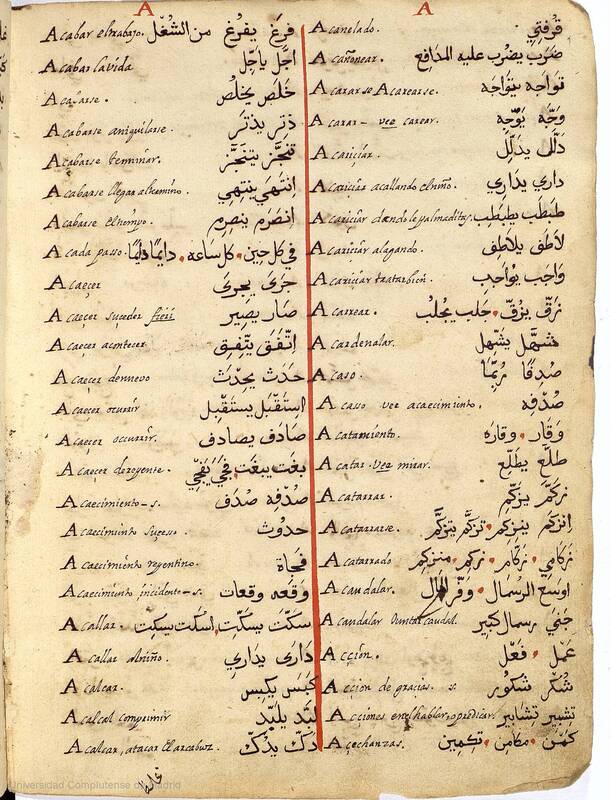 A
Acabar el trabajo. فرغ يفرغ من الشغل
Acabar la vida اجّل ياجّل
Acabarse. خلص يخلص
Acabarse aniquilarse. دثر يدثر
Acabarse terminar. تنجّز يتنجّز
Acabarse llegar al termino. انتهى ينتهي
Acabarse el tiempo. انصرم ينصرم
Acada passo. في كل حين • كل ساعه • دايمًا دايمًا
Acaeçer جرى يجرى
Acaecer suceder fieri صار يصير
Acaecer acontecer اتّفق يتّفق
Acaeçer denuevo حدث يحدث
Acaecer ocurrir استقبل يستقبل
Acaeçer ocurrir. صادف يصادف
Acaeçer de repente. بغت يبغت
Acaecimiento -s. صدفه صدف
Acaecimiento sucesso. حدوث
Acaecimiento repentino. فجاة
Acaecimiento incidente -s. وقعه وقعات
Acallar. سكّت يسكّت • اسكت يسكت
Acallar al niño. دارى يداري
Acalcar. كبس يكبس
Acalcal comprimir لبّد يلبّد
Acalcar, atacar el arcabuz. دكّ يدكّ
A
Acanelado. قرفتي
Acañonear. ضرب يضرب عليه المدافع
Acararse Acarearse. تواجه يتواجه
Acarar - vee carear. وجّه يوجّه
Acariciar. دلّل يدلّل
Acariciar acallando el niño. داري يداري
Acariciar dandole palmaditas. طبطب يطبطب
Acariciar alagando. لاطف يلاطف
Acariciar tratar bien. واجب يواجب
Acarrear. زقّ يزقّ • جلب يجلب
Acardenalar.
Acaso. صدفًا ربّما
Acasso ver acaecimiento. صدفه
Acatamiento. وقار • وقاره
Acatar. vee mirar. طلّع يطلّع
Acatarrar. زكّم يزكّم
Acatarrarse. انزكم ينزكم • تزكّم يتزكّم
Acatarrado زكامي • زكام • زكم • منزكم
Acaudalar. اوسع الرسمال • وفّر المال
Acaudalar Juntar caudal. جنى رسمال كبير
Acción. عمل • فعل
Accion de gracias. s. شكر شكور
Acciones en el hablar, o predicar.
Açechanzas. كمن • مكامن • تكمين
Universidad Complutense de Madrid